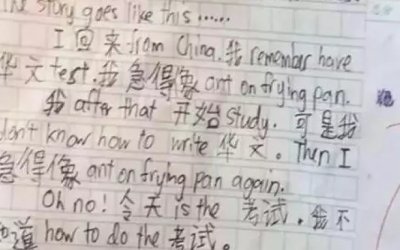 The story goes like this ......
I 回来 from China. 我 remember have
华文 test. 我急得像 ant on frying pan.
我 after that 开始 study. 可是我
don't know how to write 华文。Then I
急得像 ant on frying pan again.
Oh no! 今天 is the 考试. 我不
知道 how to do the 考试。